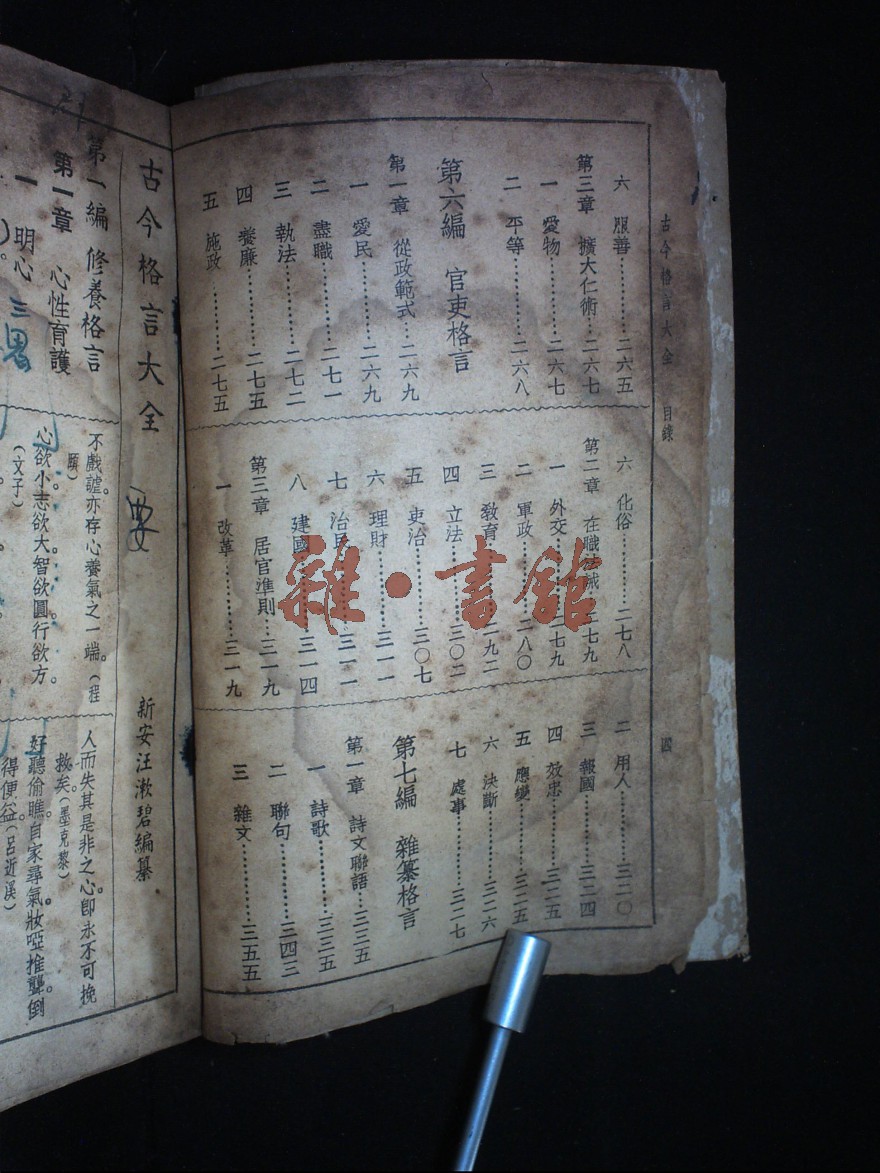 古今格言大全 目錄 四
六 服善………二六五
第三章 擴大仁術…二六七
一 愛物………二六七
二 平等………二六八
第六編 官吏格言
第一章 從政範式…二六九
一 愛民………二六九
二 盡職………二七一
三 執法………二七二
四 養廉………二七五
五 施政………二七五
六 化俗………二七八
第二章 在職法戒…二七九
一 外交………二七九
二 軍政………二八〇
三 教育………二九二
四 立法………三〇二
五 吏治………三〇七
六 理財………三一一
七 治民………三一一
八 建國………三一四
第三章 居官準則…三一九
一 改革………三一九
二 用人………三二〇
三 報國………三二四
四 效忠………三二五
五 應變………三二五
六 決斷………三二六
七 處事………三二七
第七編 雜纂格言
第一章 詩文聯語…三三五
一 詩歌………三三五
二 聯句………三四三
三 雜文………三五五
雜·書館
古今格言大全
新安汪漱碧編纂
第一編 修養格言
第一章 心性育護
一 明心
不戲謔亦存心養氣之一端。(程
頤)
心欲小志欲大智欲圓行欲方
(文子)
人而失其是非之心。卽永不可挽
救矣(墨克黎)
好聽偷瞧自家尋氣妝啞推聾倒
得便益(呂近溪)